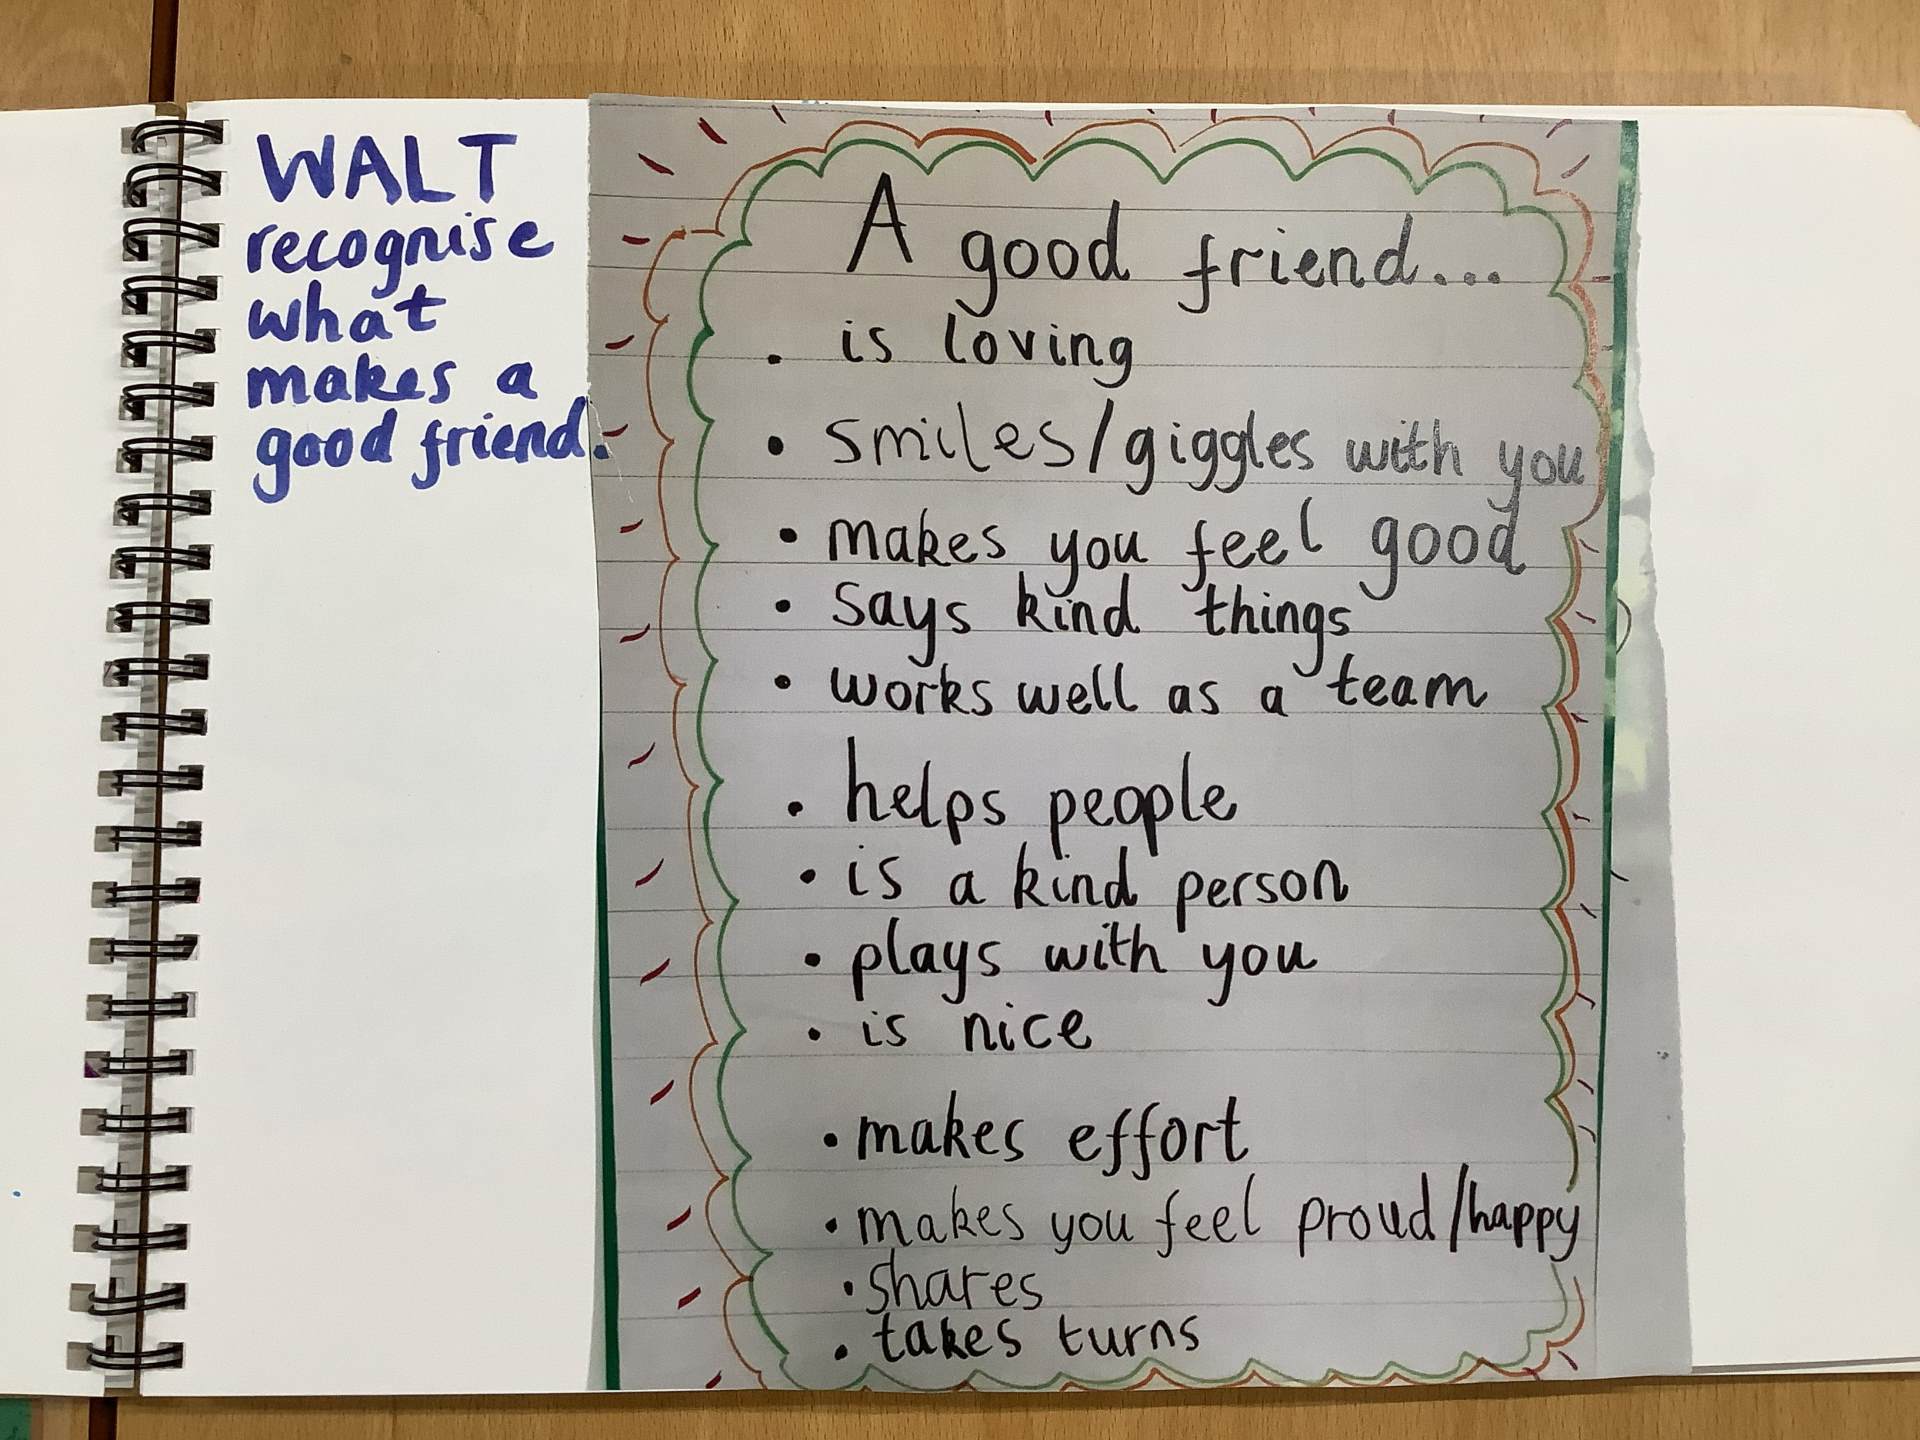 WALT
recognise
what
makes a
good friend.
A good friend...
. is loving
• smiles/giggles with you
• makes you feel good
• says kind things
• works well as a team
• helps people
• is a kind person
• plays with you
• is nice
• makes effort
• makes you feel proud/happy
• shares
• takes turns